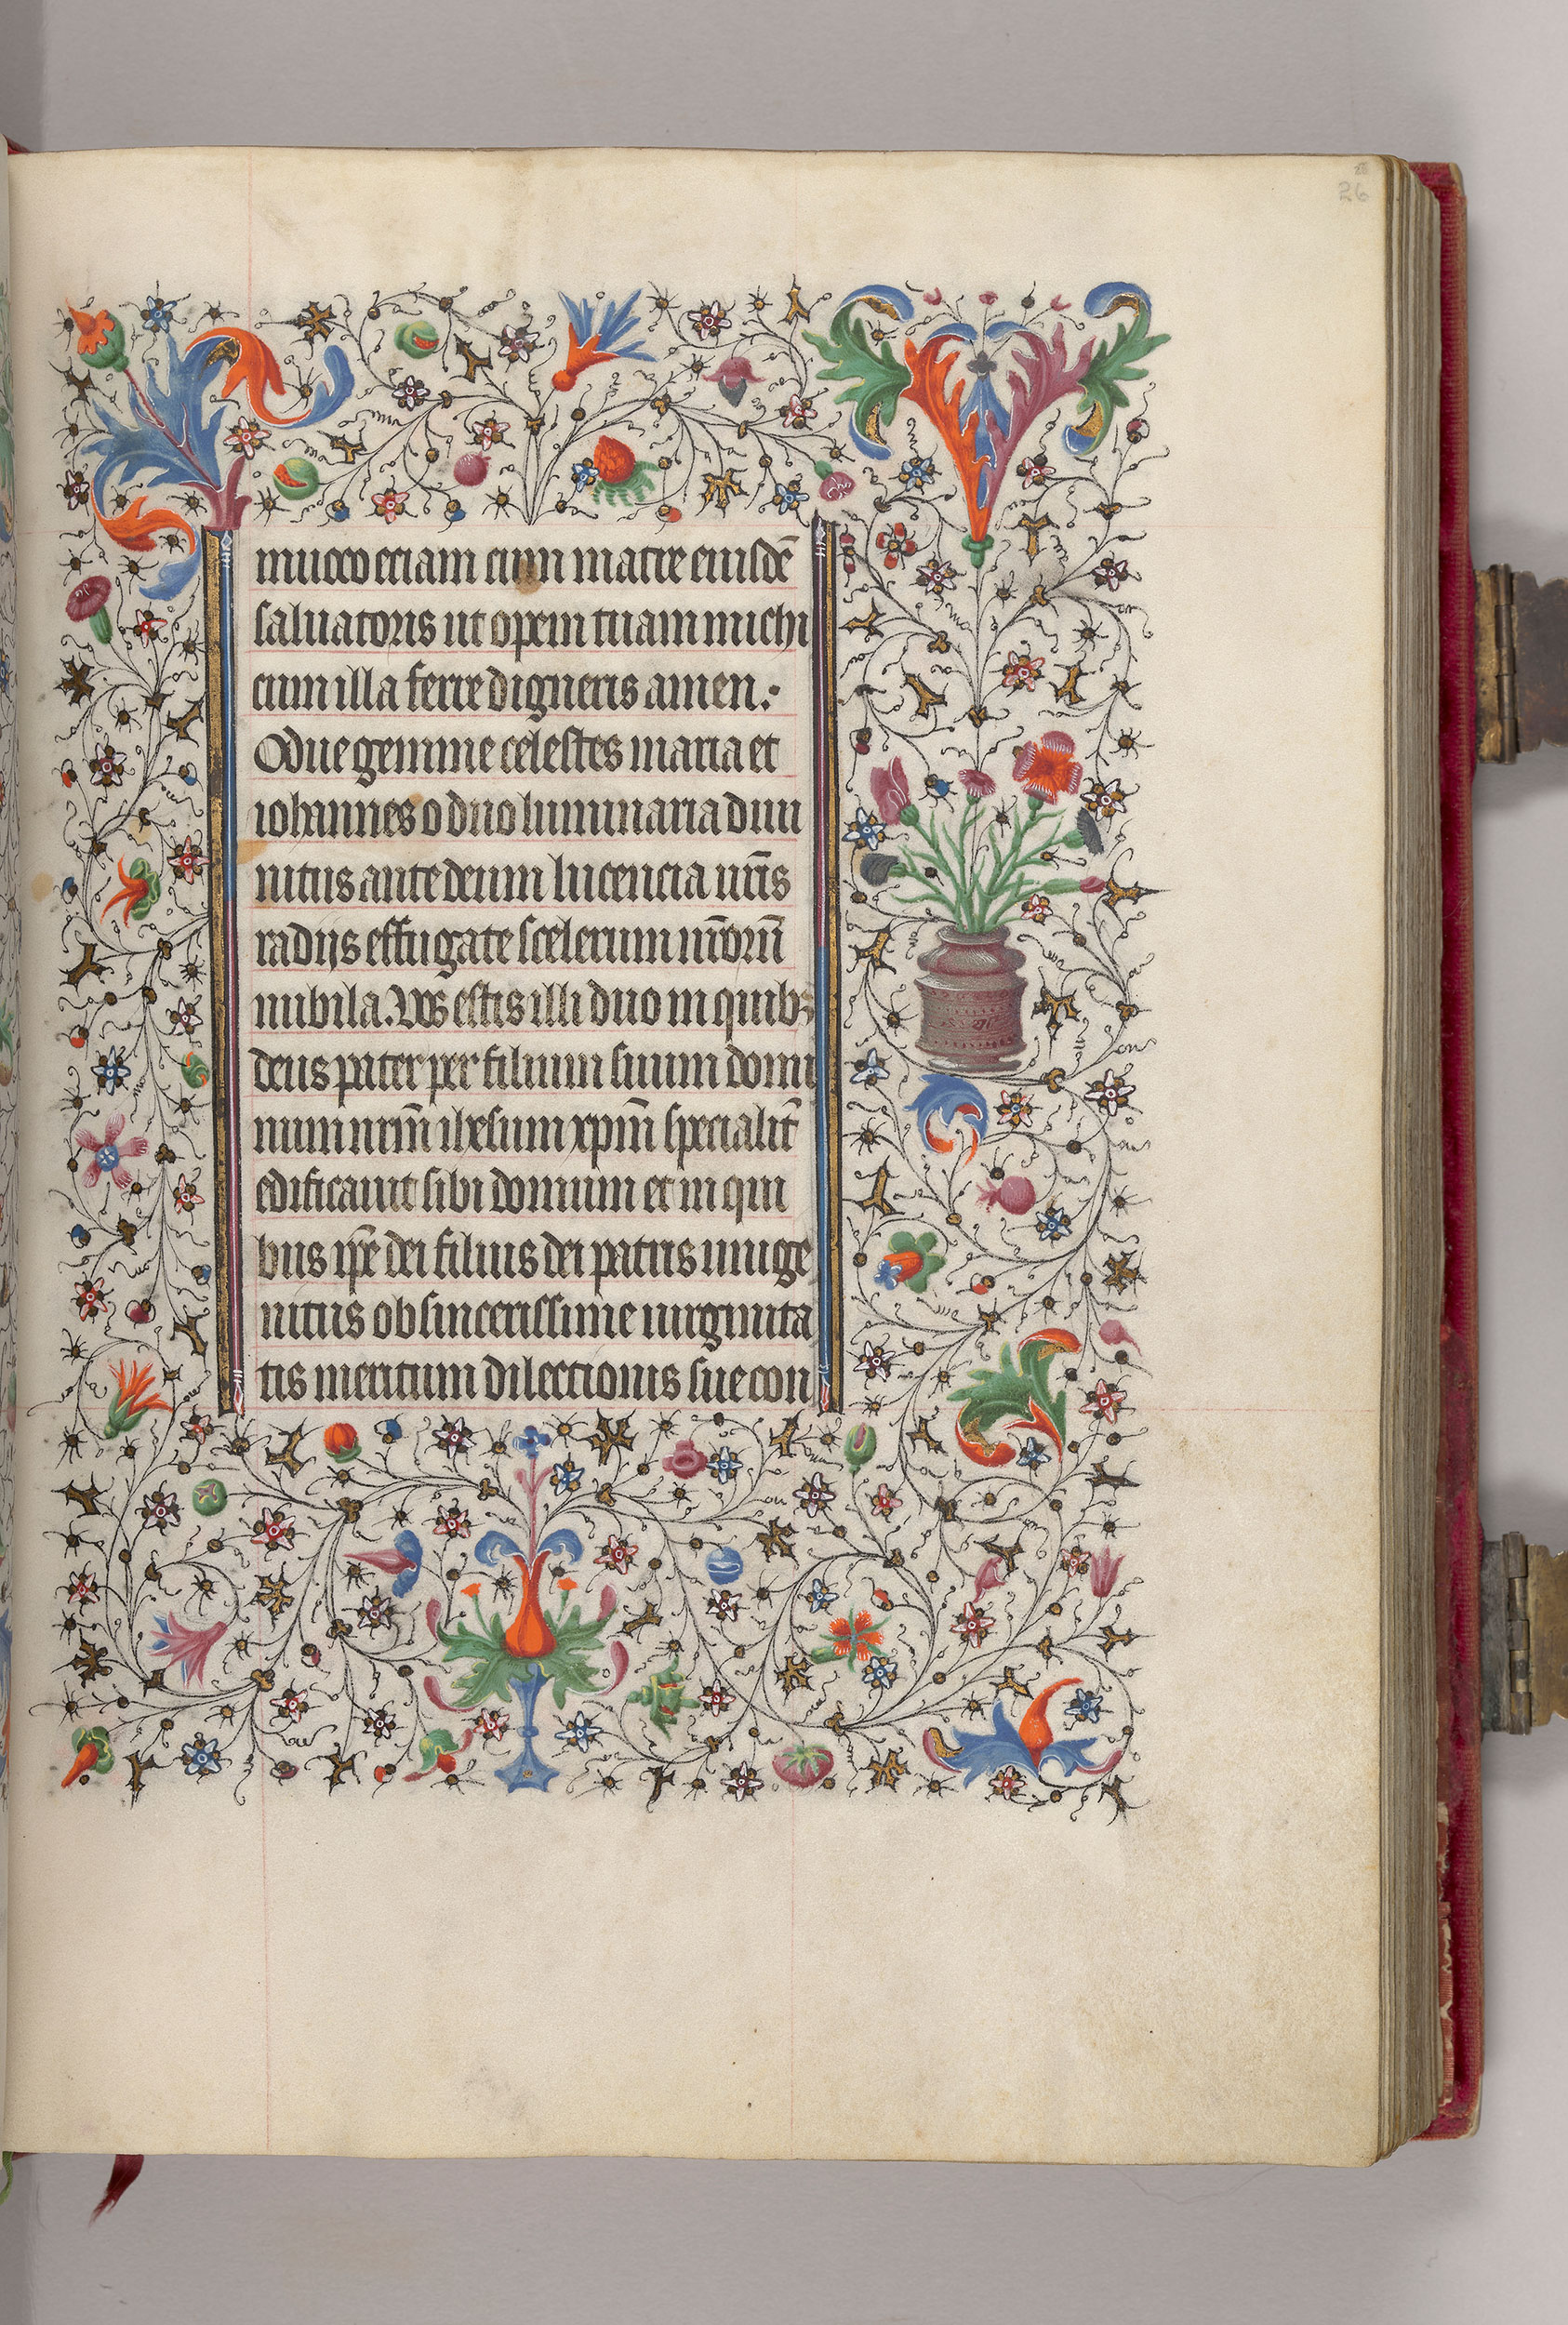 26
muoco eciam cum matre eiusdē
saluatoris ut opem tuam michi
cum illa ferre digneris amen.
O due gemme celestes maria et
iohannes o duo luminaria diui
nitus ante deum lucencia ur̄is
radijs effugate scelerum mr̄orum̄
nubila. Vos estis illi duo in quibꝫ
deus pater per filium suum domi
num nrm̄ ihesum xpm̄ specialit̄
edificauit sibi domum et in qui
bus ip̄e dei filius dei patris unige
nitus ob sincerissime uirginita
tis meritum dilectionis sue con